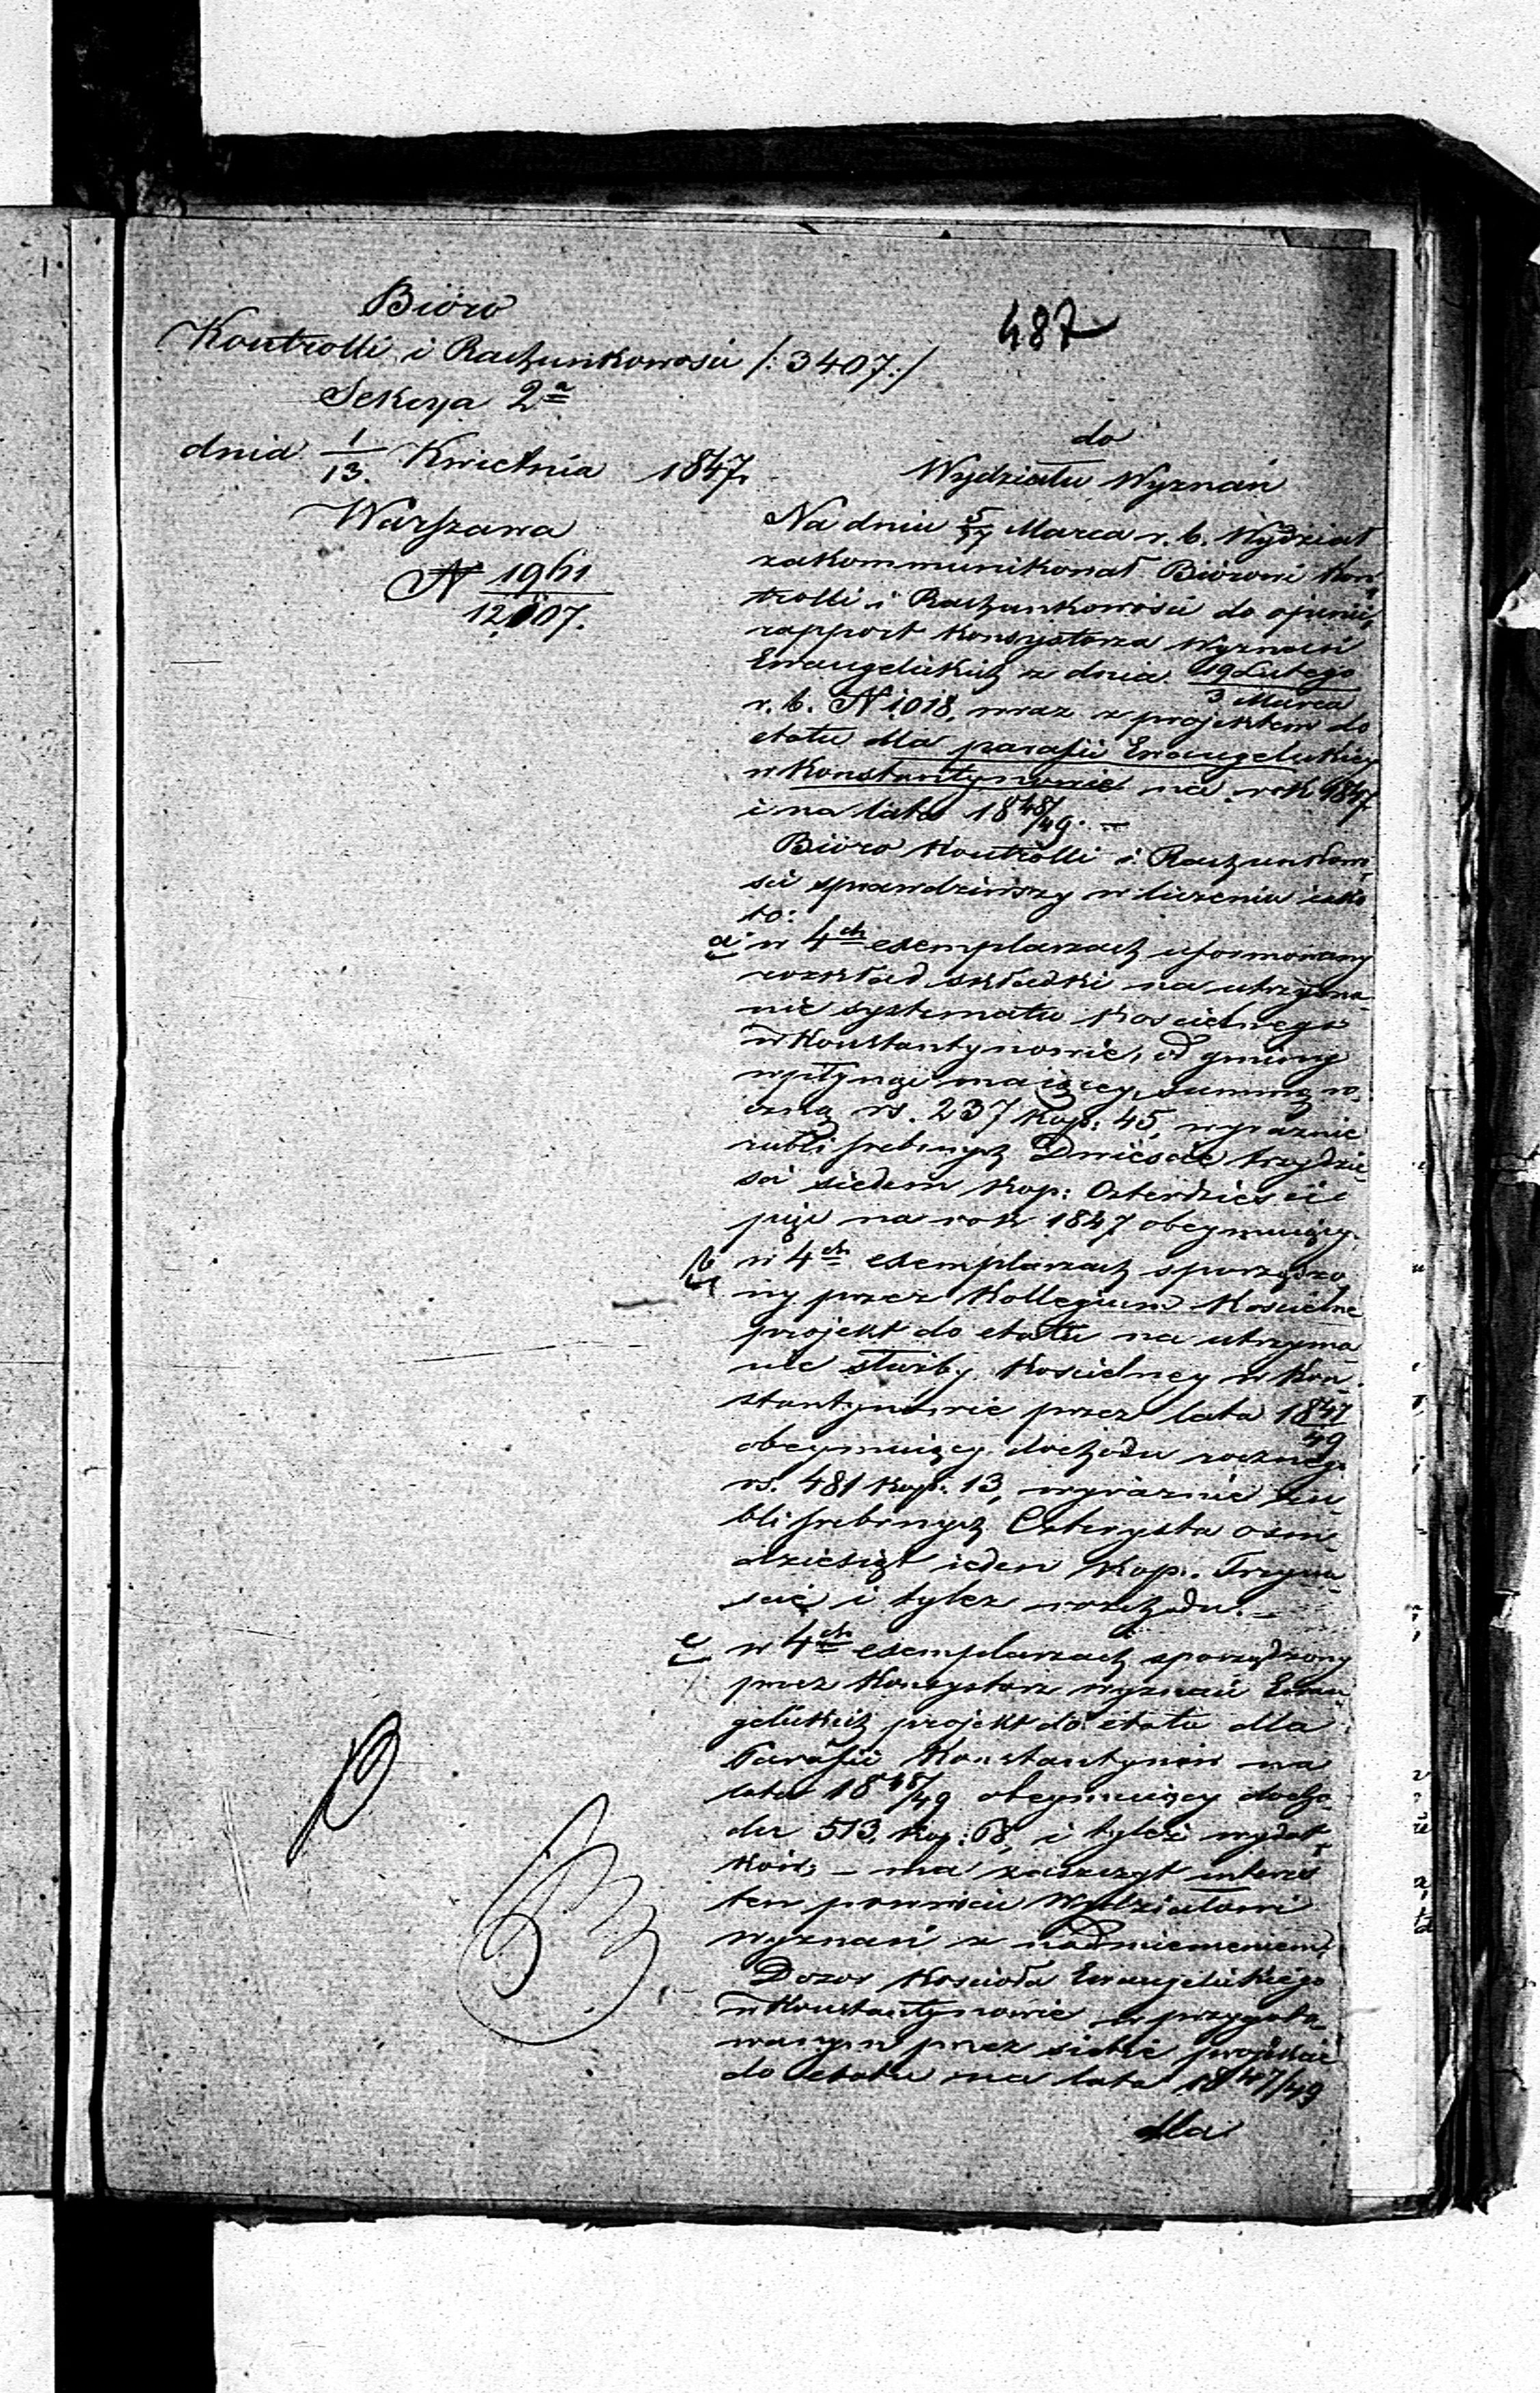 Bióro
Kontrolli i Rachunkowości /: 3407 :/
Sekcya 2a
dnia 1/13. Kwietnia 1847.
Warszawa
N 1961/12,007.
487
do
Wydziału Wyznań
Na dniu 5/17 Marca r. b. Wydział
zakommunikował Biórowi Kon-
trolli i Rachunkowości do opinii,
rapport Konsystorza Wyznań
Ewangelickich z dnia 19 Lutego/3 Marca
r. b. N 1,018, wraz z projektem do
etatu dla parafii Ewangelickiey
w Konstantynowie na rok 1847
i na lata 1848/49. —
Bióro Kontrolli i Rachunkowo-
ści sprawdziwszy w liczeniu iako
to:
a w 4ch exemplarzach uformowany
rozkład składki na utrzyma-
nie systematu Kościelnego
w Konstantynowie, od gminy
wpłynąć maiącey, summę ro-
czną rs. 237 kop: 45, wyraźnie
rubli srebrnych Dwieście trzydzie-
ści siedem kop: Czterdzieści
pięć na rok 1847 obeymuiący.
b w 4ch exemplarzach sporządzo-
ny przez Kollegium Kościelne
projekt do etatu na utrzyma-
nie służby Kościelney w Kon-
stantynowie przez lata 1847/49
obeymuiący dochodu rocznego
rs. 481 kop: 13, wyraźnie ru-
bli srebrnych Czterysta ośm-
dziesiąt ieden kop: Trzyna-
ście i tyleż rozchodu. —
c w 4ch exemplarzach sporządzony
przez Konsystorz wyznań Ewan-
gelickich projekt do etatu dla
Parafii Konstantynów na
lata 1848/49 obeymuiący docho-
du 513, kop: 68, i tyleż wydat-
ków, — ma zaszczyt interes
ten powrócić Wydziałowi
wyznań z nadmienieniem,
Dozór Kościoła Ewangelickiego
w Konstantynowie w przygoto-
wanym przez siebie projekcie
do etatu na lata 1847/49
dla